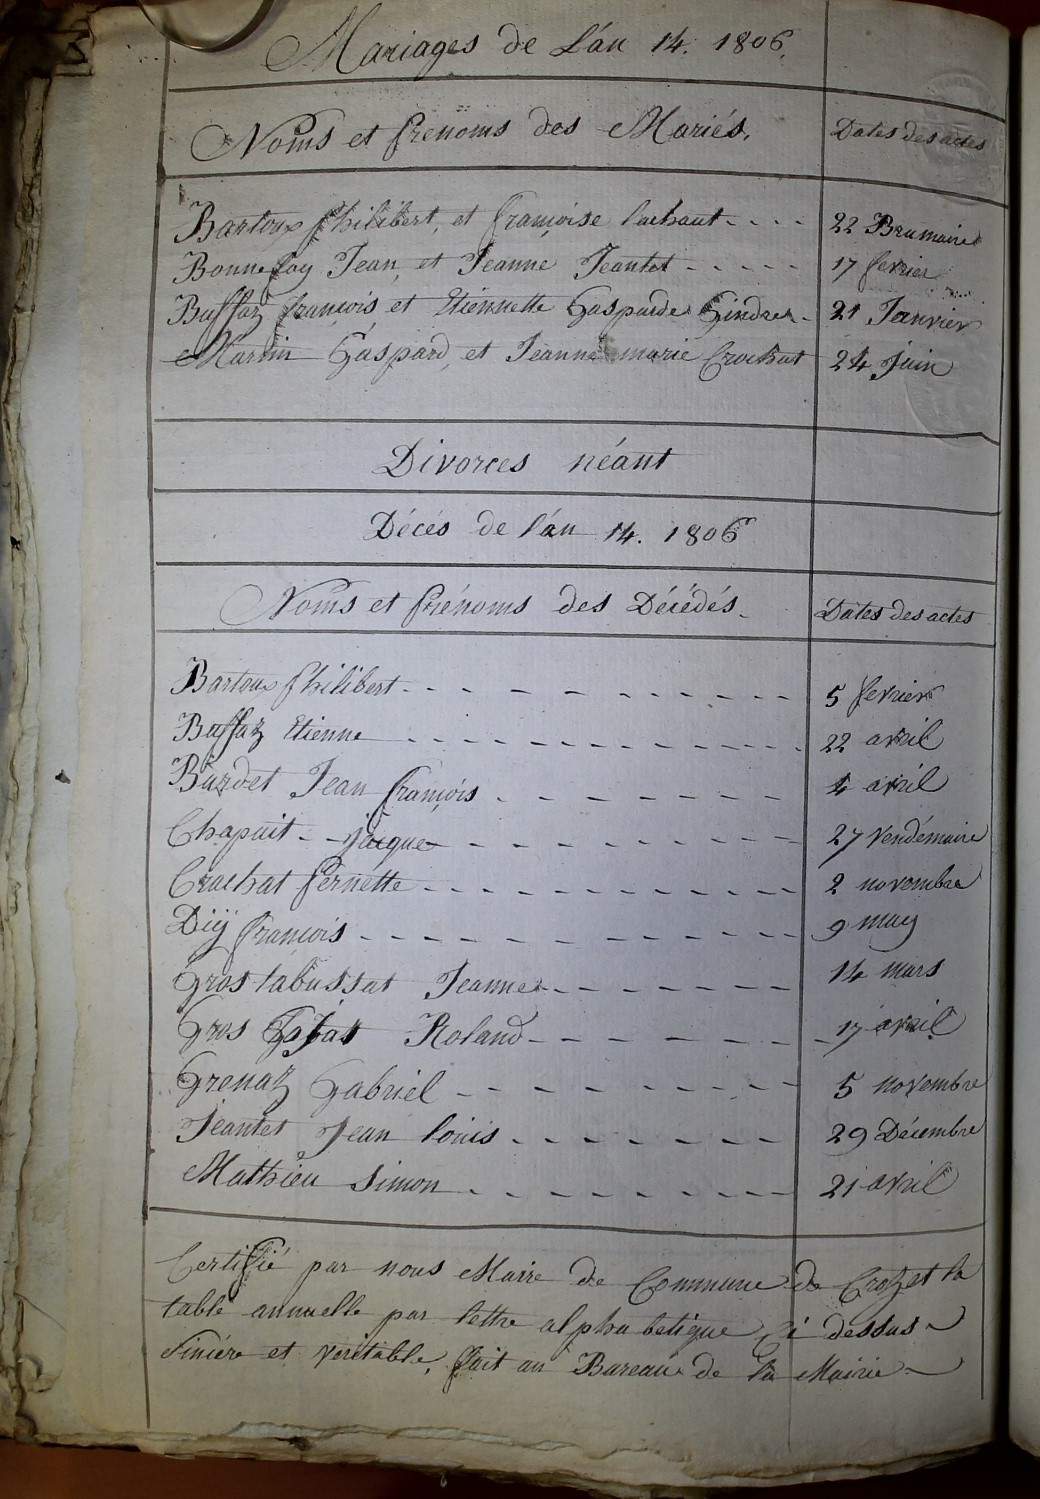 Mariages de L'an 14. 1806
Noms et Prenoms des Mariés. Dates des actes
Bartoux Philibert, et Françoise Lachaut 22 Brumaire
Bonnefoy Jean, et Jeanne Jeantet 17 fevrier
Buffaz François et Etiennette Gasparde Gindre 21 Janvier
Martin Gaspard, et Jeanne marie Crochat 24 Juin
Divorces néant
Décés de l'an 14. 1806
Noms et Prénoms des Décédés. Dates des actes
Bartoux Philibert 5 fevrier
Buffaz Etienne 22 avril
Burdet Jean François 4 avril
Chapuit jacque 27 Vendémaire
Crochat Pernette 2 novembre
Diÿ François 9 may
Gros tabussat Jeanne 14 mars
Gros Roland 17 avril
Grenaz Gabriel 5 novembre
Jeantet Jean louis 29 Décembre
Mathieu Simon 21 avril
Certifié par nous Maire de Commune de Crozet la
table annuelle par lettre alphabetique ci dessus
Sincère et veritable, fait au Bureau de la Mairie